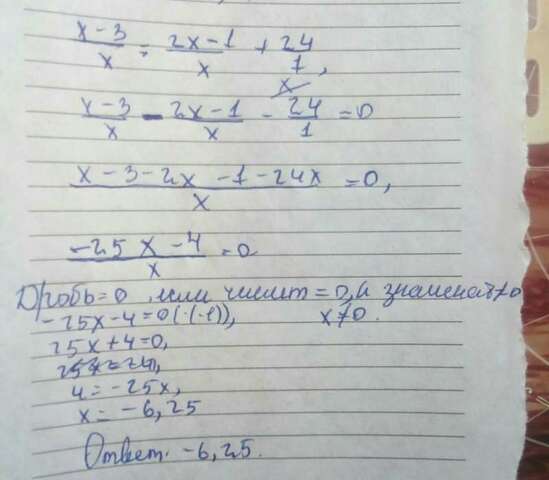 x-3/x = 2x-1/x + 24/1
x-3/x - 2x-1/x - 24/1 = 0
x-3-2x-1-24x/x = 0,
-25x-4/x = 0
Дробь = 0, если числит = 0, а знаменат ≠ 0
-25x-4=0(·(-1)), x≠0.
25x+4=0,
4=-25x,
x=-6,25
Ответ: -6,25.